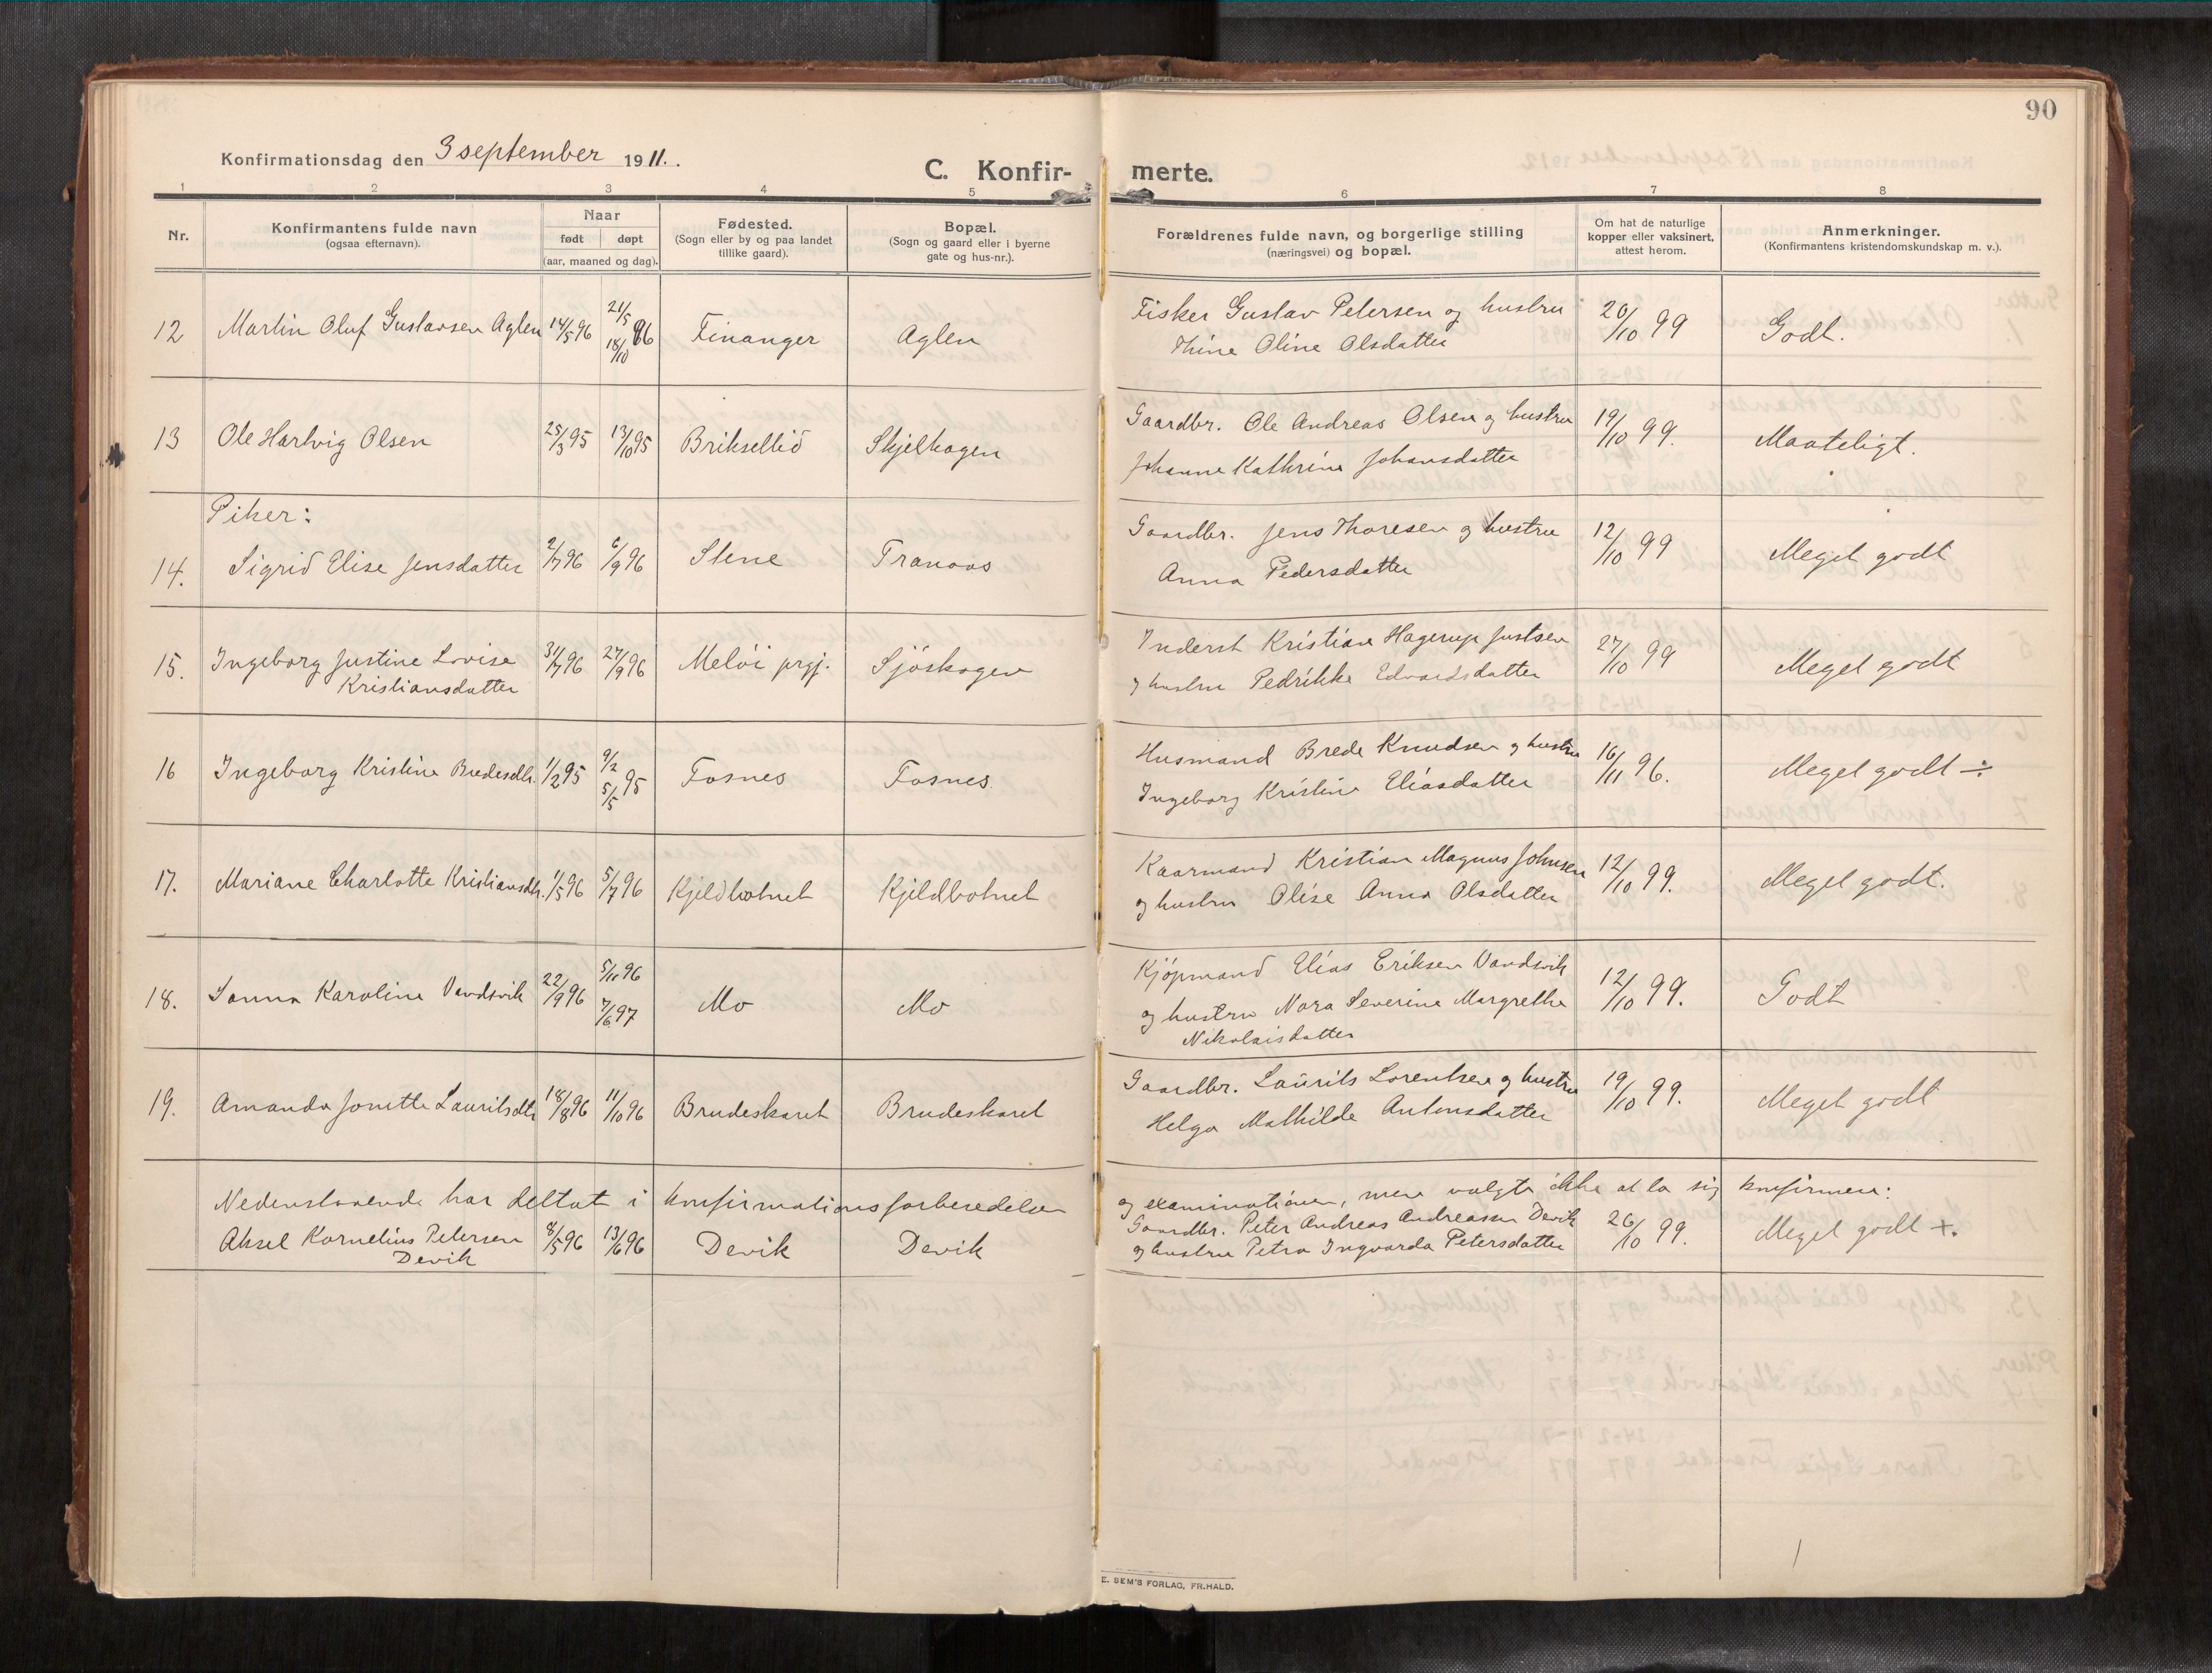 90
Konfirmationsdag den 3 september 1911.
C. Konfirmerte.
1 2 3 4 5 6 7 8
Nr.
Konfirmantens fulde navn
(ogsaa efternavn).
Naar
født døpt
(aar, maaned og dag).
Fødested.
(Sogn eller by og paa landet
tillike gaard).
Bopæl.
(Sogn og gaard eller i byerne
gate og hus-nr.).
Forældrenes fulde navn, og borgerlige stilling
(næringsvei) og bopæl.
Om hat de naturlige
kopper eller vaksinert,
attest herom.
Anmerkninger.
(Konfirmantens kristendomskundskap m. v.).
12 Martin Oluf Gustavsen Aglen 14/5 96 21/5 18/10 96 Finanger Aglen Fisker Gustav Petersen og hustru 20/10 99 Godt.
Thine Oline Olsdatter
13 Ole Hartvig Olsen 25/3 95 13/10 95 Briksellid Skjelhagen Gaardbr. Ole Andreas Olsen og hustru 19/10 99. Maateligt.
Johanne Kathrine Johansdatter
Piker:
14. Sigrid Elise Jensdatter 2/7 96 6/9 96 Slene Tranaas Gaardbr. Jens Thoresen og hustru 12/10 99 Meget godt
Anna Pedersdatter
15. Ingeborg Justine Lovise 31/7 96 27/9 96 Melöi prgj. Sjöskogen Inderst Kristian Hagerup Justsen 27/10 99 Meget godt
Kristiansdatter og hustru Pedrikke Edvardsdatter
16 Ingeborg Kristine Bredesdtr. 1/2 95 9/2 5/5 95 Fosnes Fosnes. Husmand Brede Knudsen og hustru 16/11 96. Meget godt ÷
Ingeborg Kristine Eliasdatter
17. Mariane Charlotte Kristiansdtr. 1/5 96 5/7 96 Kjeldbotnet Kjeldbotnet Kaarmand Kristian Magnus Johnsen 12/10 99. Meget godt.
og hustru Olise Anna Olsdatter
18. Sanna Karoline Vandsvik 22/9 96 5/11 96 7/6 97 Mo Mo Kjöpmand Elias Eriksen Vandsvik 12/10 99. Godt
og hustru Nora Severine Margrethe
Nikolaisdatter
19. Amanda Jonette Lauritsdtr 18/8 96 11/10 96 Brudeskaret Brudeskaret Gaardbr. Laurits Lorentsen og hustru 19/10 99. Meget godt
Helga Mathilde Antonsdatter
Nedenstaaende har deltat i konfirmationsforberedelsen og examinationen, men valgte ikke at la sig konfirmere:
Aksel Kornelius Petersen 8/5 96 13/6 96 Devik Devik Gaardbr. Peter Andreas Andreassen Devik 26/10 99. Meget godt +.
Devik og hustru Petra Ingvarda Petersdatter
E. SEM'S FORLAG, FR.HALD.